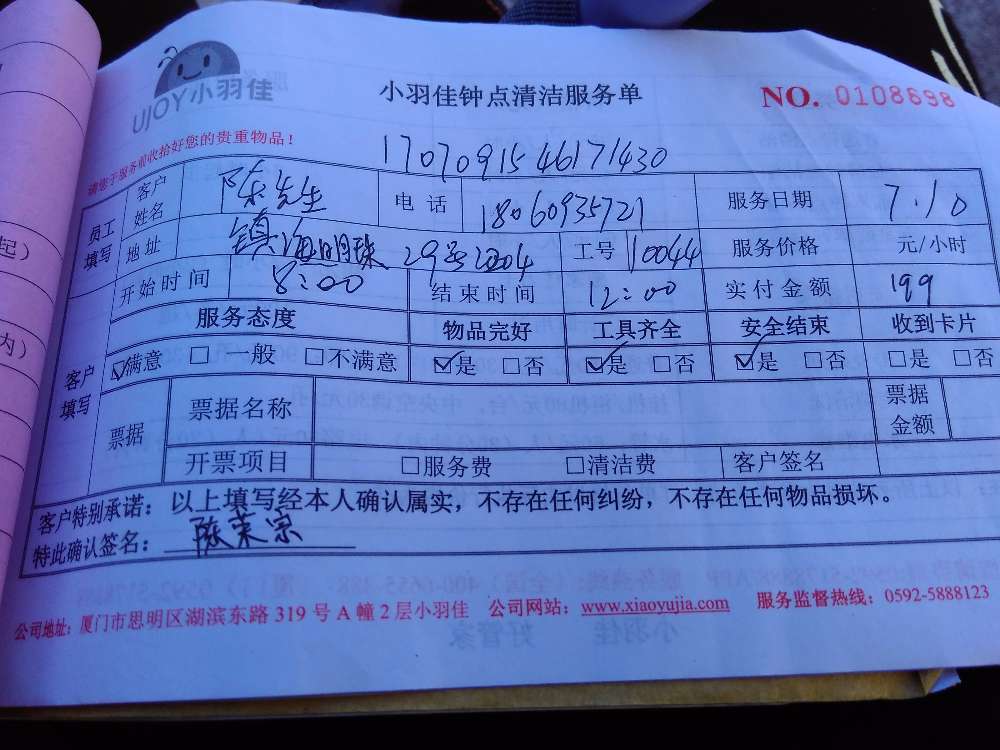 UJOY小羽佳
小羽佳钟点清洁服务单
NO. 0108698
请您于服务前收拾好您的贵重物品！
1707091546171430
员工填写 客户姓名 陈先生 电话 18060935721 服务日期 7.10
地址 镇海明珠 29号2004 工号 10044 服务价格 元/小时
客户填写 开始时间 8:00 结束时间 12:00 实付金额 199
服务态度 物品完好 工具齐全 安全结束 收到卡片
☑满意 □一般 □不满意 ☑是 □否 ☑是 □否 ☑是 □否 □是 □否
票据 票据名称 票据金额
开票项目 □服务费 □清洁费 客户签名
客户特别承诺：以上填写经本人确认属实，不存在任何纠纷，不存在任何物品损坏。
特此确认签名：陈荣宗
公司地址：厦门市思明区湖滨东路 319 号 A 幢 2 层小羽佳 公司网站：www.xiaoyujia.com 服务监督热线：0592-5888123